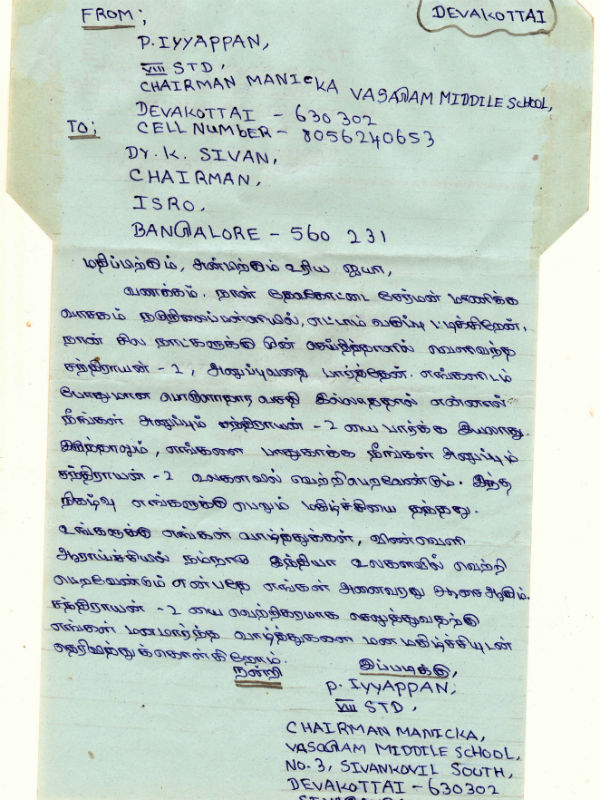 DEVAKOTTAI
FROM;
P. IYYAPPAN,
VIII STD,
CHAIRMAN MANICKA VASAGAM MIDDLE SCHOOL,
DEVAKOTTAI - 630 302
TO; CELL NUMBER - 8056240653
Dr. K. SIVAN,
CHAIRMAN,
ISRO,
BANGALORE - 560 231
மதிப்பிற்கும், அன்பிற்கும் உரிய ஐயா,
வணக்கம். நான் தேவகோட்டை சேர்மன் மாணிக்க
வாசகம் நடுநிலைப்பள்ளியில், எட்டாம் வகுப்பு படிக்கிறேன்.
நான் சில நாட்களுக்கு முன் செய்தித்தாளில் வெளிவந்த
சந்திராயன் - 2, அனுப்புவதை பார்த்தேன். எங்களிடம்
போதுமான பொருளாதார வசதி இல்லாததால் என்னால்
நீங்கள் அனுப்பும் சந்திராயன் - 2 யை பார்க்க இயலாது.
இருந்தாலும், எங்களை பாதுகாக்க நீங்கள் அனுப்பும்
சந்திராயன் - 2 உலகளவில் வெற்றிபெறவேண்டும். இந்த
நிகழ்வு எங்களுக்கு பெரும் மகிழ்ச்சியை தந்தது.
உங்களுக்கு எங்கள் வாழ்த்துக்கள், விண்வெளி
ஆராய்ச்சியில் நம்நாடு இந்தியா உலகளவில் வெற்றி
பெறவேண்டும் என்பதே எங்கள் அனைவரது ஆசை ஆகும்.
சந்திராயன் - 2 யை வெற்றிகரமாக செலுத்துவதற்கு
எங்கள் மனமார்ந்த வாழ்த்துகளை மன மகிழ்ச்சியுடன்
தெரிவித்துக்கொள்கிறோம்.
நன்றி
இப்படிக்கு,
P. IYYAPPAN,
VIII STD,
CHAIRMAN MANICKA,
VASAGAM MIDDLE SCHOOL,
NO. 3, SIVANKOVIL SOUTH,
DEVAKOTTAI - 630302